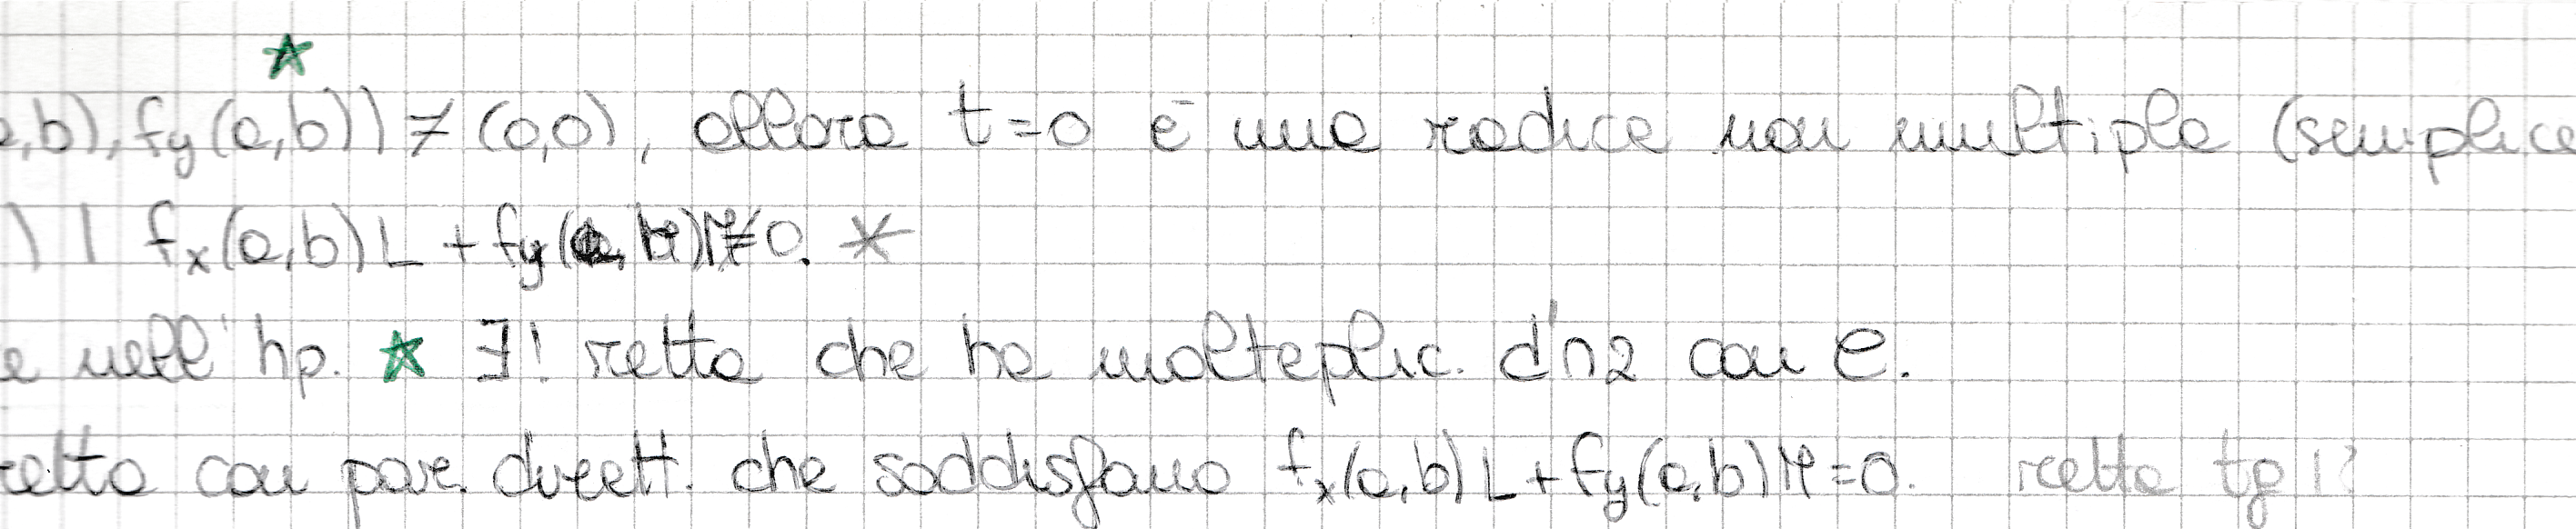 ☆
,b), fy(a,b)) ≠ (0,0), allora t=0 è una radice non multipla (semplice
) | fx(a,b)L + fy(a,b)M≠0. *
e nell'hp. ☆ ∃! retta che ha molteplic. d'∩ 2 con C.
retta con par. dirett. che soddisfano fx(a,b)L+fy(a,b)M=0. retta tg